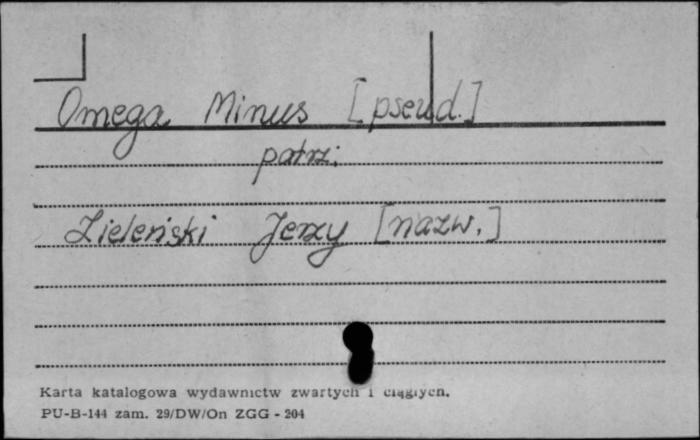 Omega Minus [pseud.]
patrz:
Zieleński Jerzy [nazw.]
Karta katalogowa wydawnictw zwartych i ciągłych.
PU-B-144 zam. 29/DW/On ZGG - 204